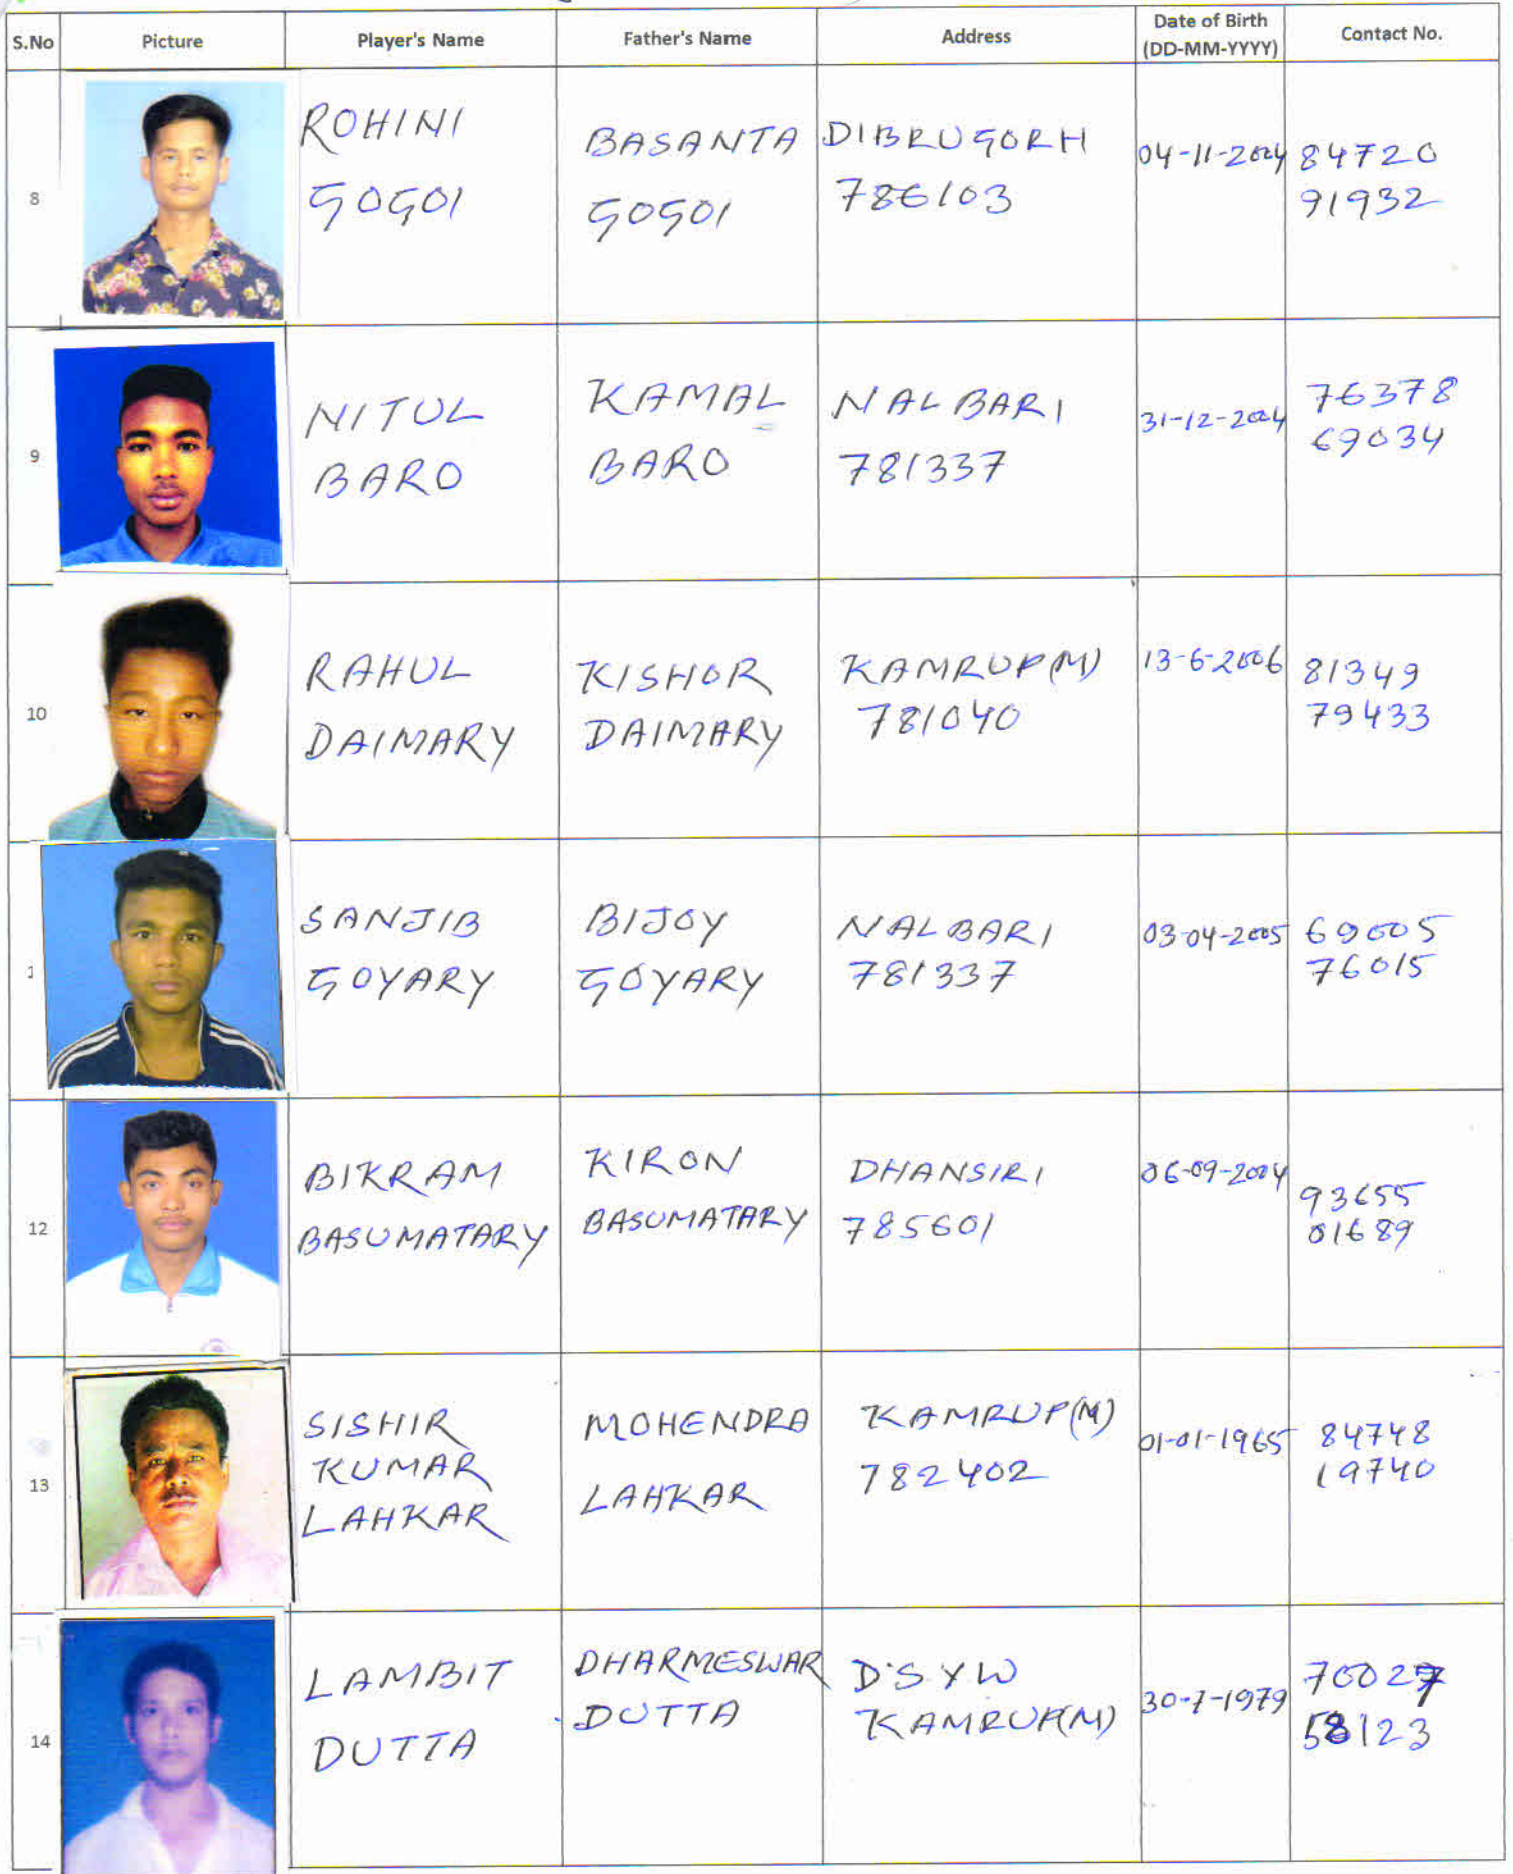 S.No Picture Player's Name Father's Name Address Date of Birth (DD-MM-YYYY) Contact No.
8
ROHINI
GOGOI
BASANTA
GOGOI
DIBRUGORH
786103
04-11-2004
84720
91932
9
NITUL
BARO
KAMAL
BARO
NALBARI
781337
31-12-2004
76378
69034
10
RAHUL
DAIMARY
KISHOR
DAIMARY
KAMRUP(M)
781040
13-6-2006
81349
79433
1
SANJIB
GOYARY
BIJOY
GOYARY
NALBARI
781337
03-04-2005
69005
76015
12
BIKRAM
BASUMATARY
KIRON
BASUMATARY
DHANSIRI
785601
06-09-2004
93655
01689
13
SISHIR
KUMAR
LAHKAR
MOHENDRA
LAHKAR
KAMRUP(M)
782402
01-01-1965
84748
19740
14
LAMBIT
DUTTA
DHARMESWAR
DUTTA
DSYW
KAMRUP(M)
30-7-1979
70027
58123